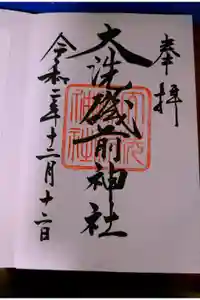 奉拝
大洗磯前神社
令和二年十二月十二日